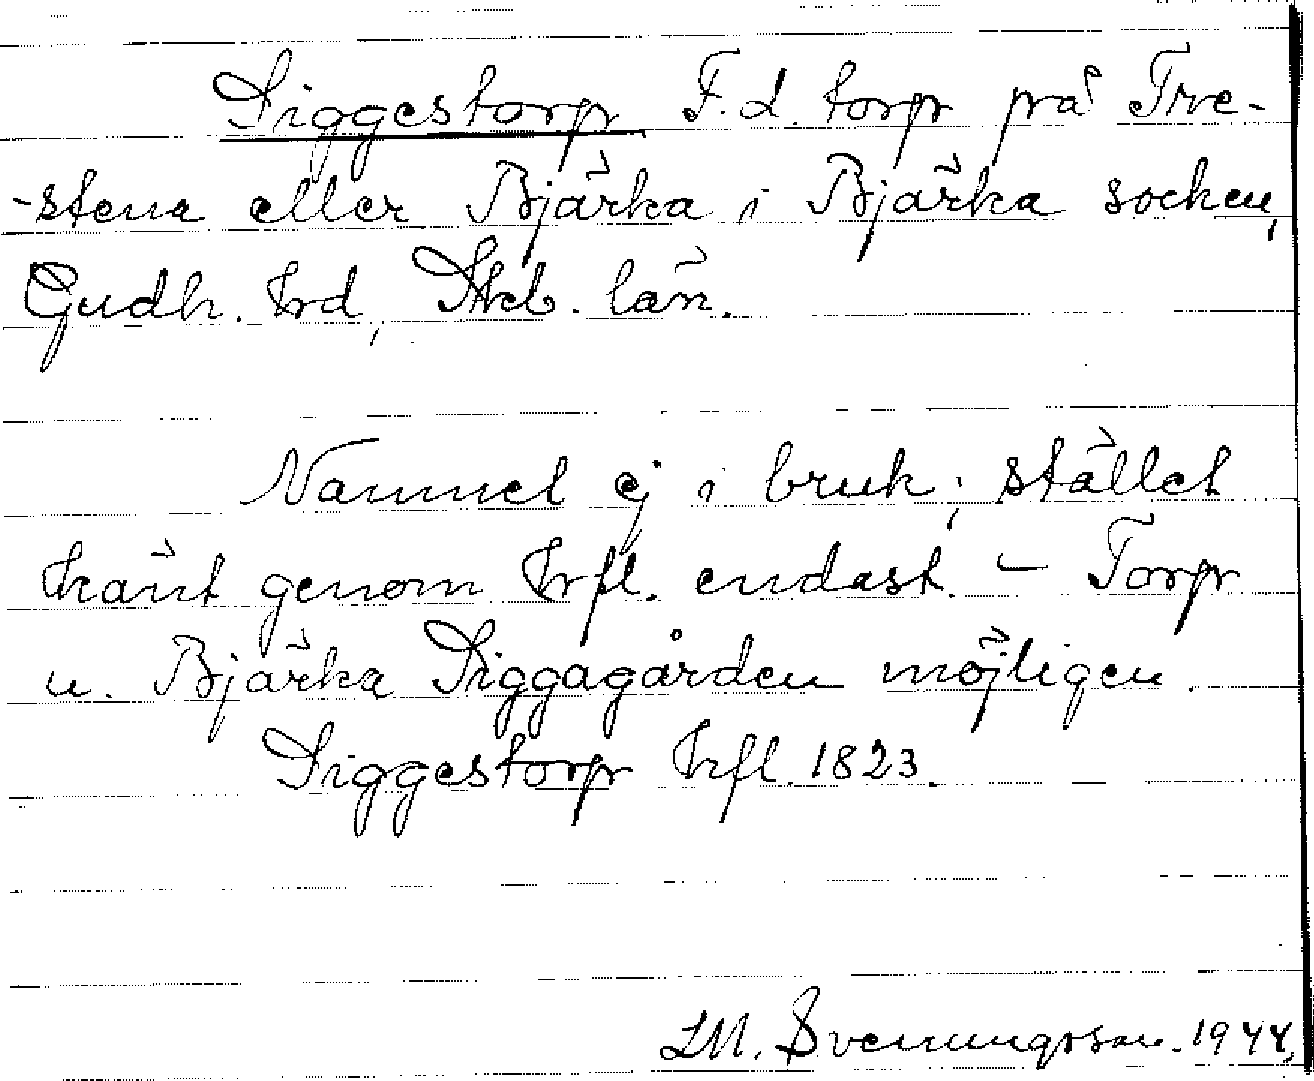 Siggestorp F.d. torp på Tre-
-stena eller Bjärka i Bjärka socken,
Gudh. hrd, Skb. län.
Namnet ej i bruk; stället
känt genom hfl. endast. – Torp
u. Bjärka Siggagården möjligen.
Siggestorp hfl. 1823.
LM. Svenungsson. 1944.